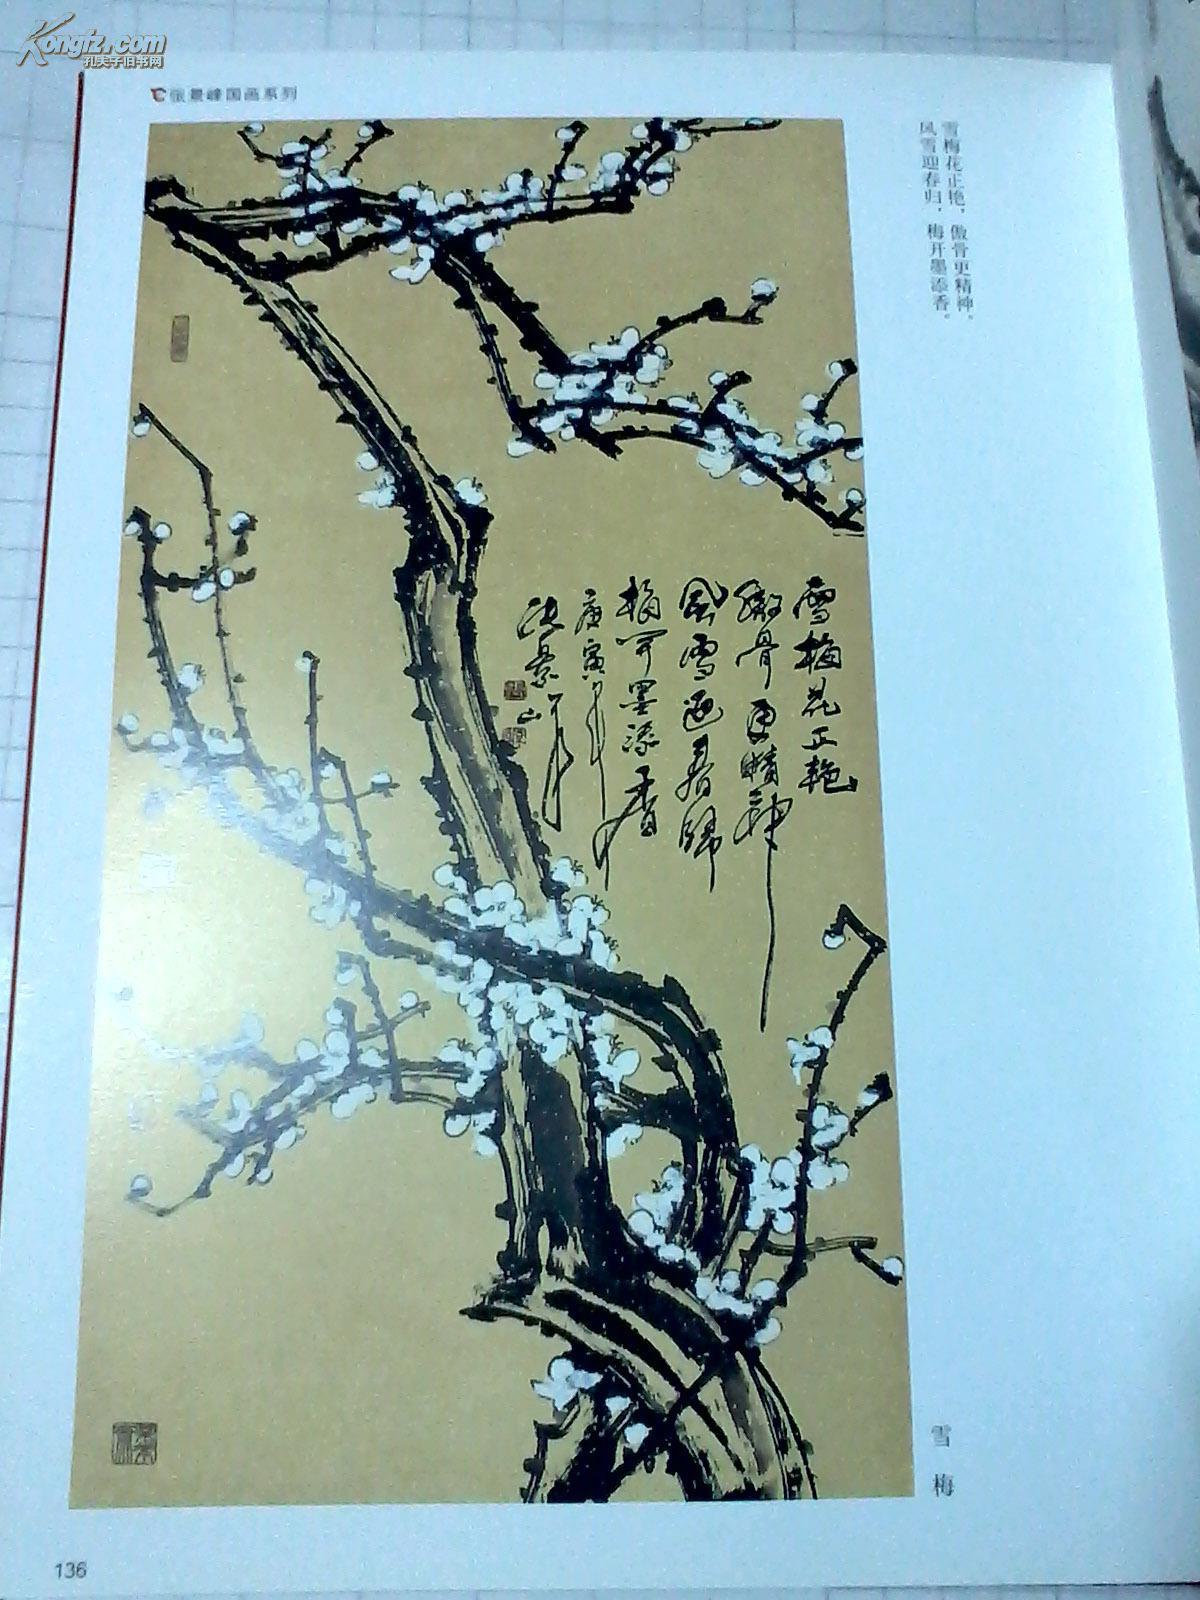 Kongfz.com
孔夫子旧书网
张景峰国画系列
雪梅花正艳，傲骨更精神。
风雪迎春归，梅开墨添香。
雪梅花正艳
傲骨更精神
風雪迎春歸
梅開墨添香
庚寅年
張景峰
雪梅
136